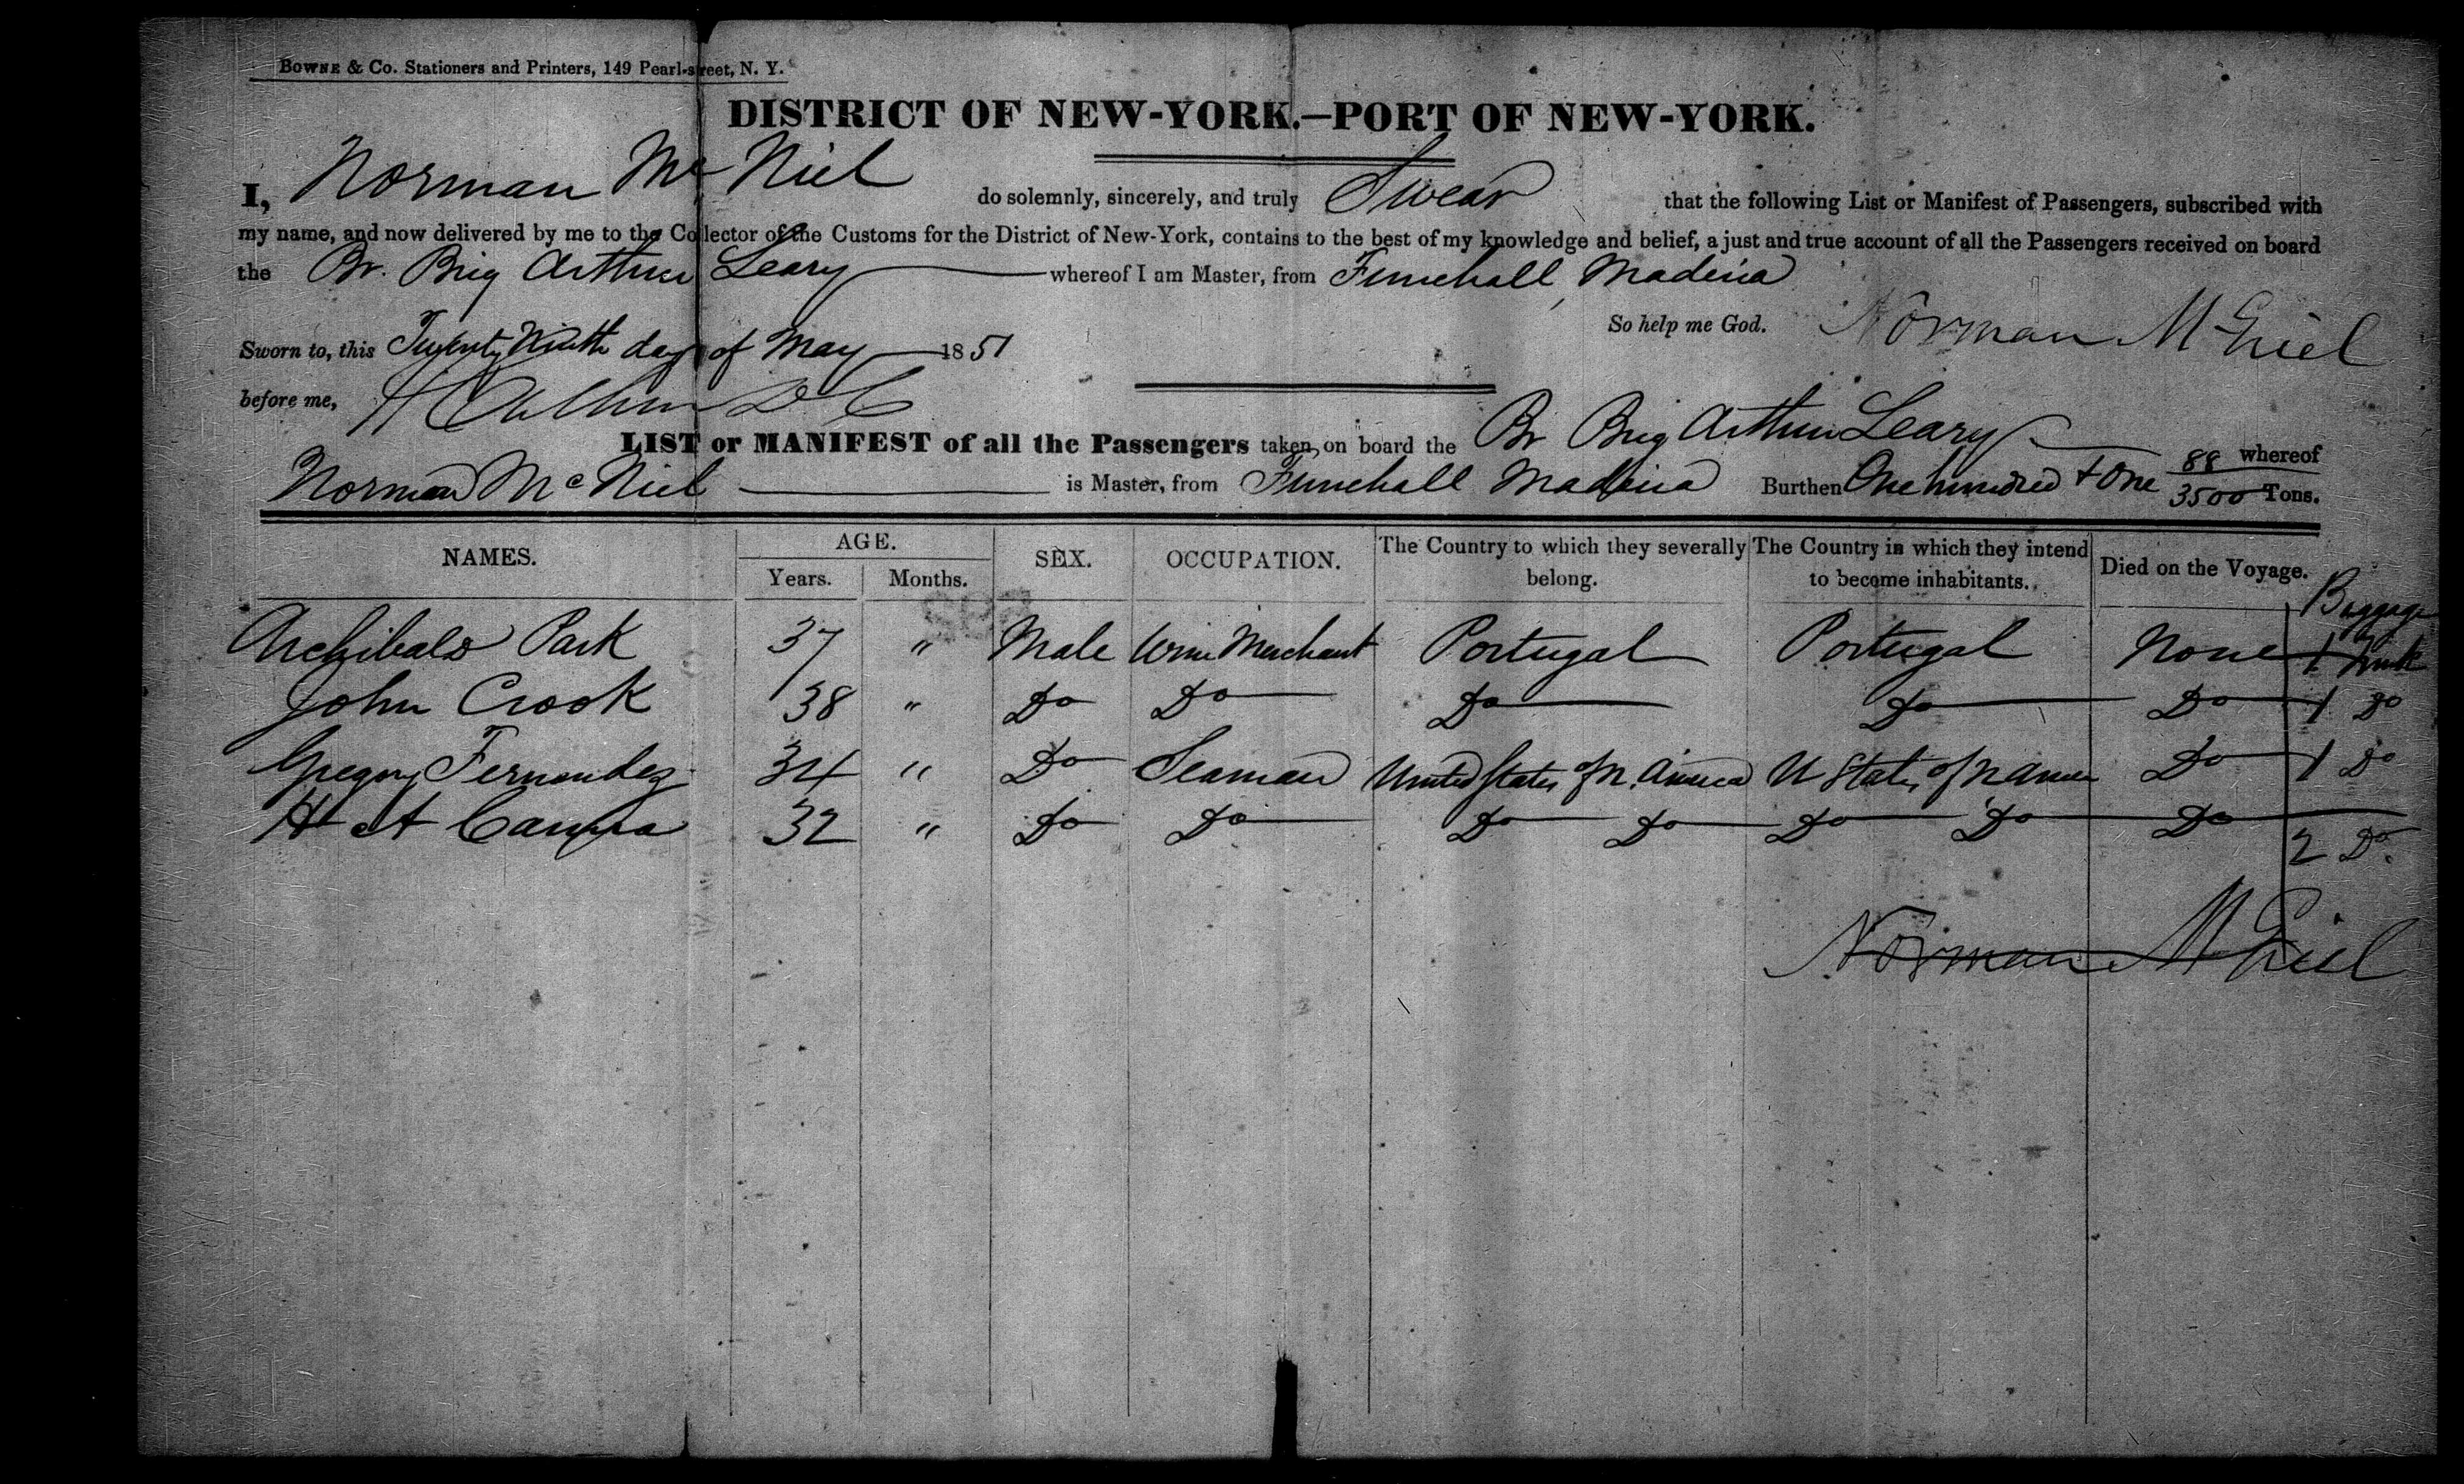 BOWNE & Co. Stationers and Printers, 149 Pearl-street, N. Y.
DISTRICT OF NEW-YORK.—PORT OF NEW-YORK.
I, Norman Mc Niel do solemnly, sincerely, and truly Swear that the following List or Manifest of Passengers, subscribed with
my name, and now delivered by me to the Collector of the Customs for the District of New-York, contains to the best of my knowledge and belief, a just and true account of all the Passengers received on board
the Br. Brig Arthur Leary whereof I am Master, from Funchall, Madeira
So help me God. Norman McNiel
Sworn to, this Twenty Ninth day of May 1851
before me, D C
LIST or MANIFEST of all the Passengers taken on board the Br Brig Arthur Leary whereof
Norman McNiel is Master, from Funchall Madeira Burthen One hundred + One 88/3500 Tons.
NAMES. AGE. Years. Months. SEX. OCCUPATION. The Country to which they severally belong. The Country in which they intend to become inhabitants. Died on the Voyage. Baggage
Archibald Park 37 " Male Wine Merchant Portugal Portugal None 1 Trunk
John Crook 38 " Do Do Do Do Do 1 Do
Gregory Fernandez 34 " Do Seaman United States of N. America U States of N Amer Do 1 Do
H A 32 " Do Do Do Do Do Do Do 2 Do.
Norman McNiel